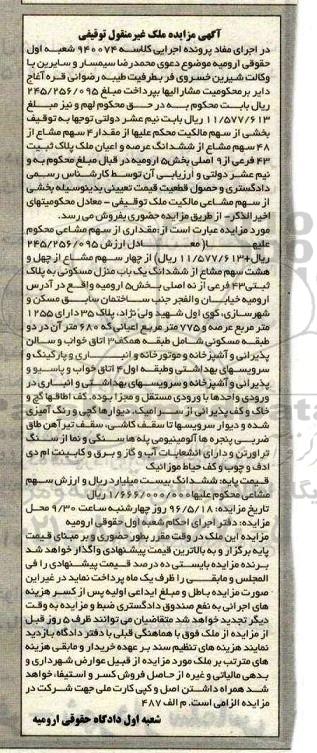 آگهی مزایده ملک غیرمنقول توقیفی
در اجرای مفاد پرونده اجرایی کلاسه ۹۴۰۰۷۴ شعبه اول
حقوقی ارومیه موضوع دعوی محمدرضا سیمسار و سایرین با
وکالت شیرین خسروی فر بطرفیت طیبه رضوانی قره آغاج
دایر بر محکومیت مشارالیها بپرداخت مبلغ ۲۴۵/۲۵۶/۰۹۵
ریال بابت محکوم به در حق محکوم لهم و نیز مبلغ
۱۱/۵۷۷/۶۱۳ ریال بابت نیم عشر دولتی توجها به توقیف
بخشی از سهم مالکیت محکم علیها از مقدار ۴ سهم مشاع از
۴۸ سهم مشاع از ششدانگ عرصه و اعیان ملک پلاک ثبت
۴۳ فرعی از ۹ اصلی بخش۵ ارومیه در قبال مبلغ محکوم به و
نیم عشر دولتی و ارزیابی آن توسط کارشناس رسمی
دادگستری و حصول قطعیت قیمت تعیینی بدینوسیله بخشی
از سهم مشاعی مالکیت ملک توقیفی - معادل محکومیتهای
اخیرالذکر - از طریق مزایده حضوری بفروش می رسد.
مورد مزایده عبارت است از: مقداری از سهم مشاعی محکوم
علیها (معادل ارزش ۲۴۵/۲۵۶/۰۹۵
ریال+۱۱/۵۷۷/۶۱۳ ریال) از چهار سهم مشاع از چهل و
هشت سهم مشاع از ششدانگ یک باب منزل مسکونی به پلاک
ثبتی۴۳ فرعی از نه اصلی بخش۵ ارومیه واقع در آدرس
ارومیه خیابان والفجر جنب ساختمان سابق مسکن و
شهرسازی، کوی اول شهید ولی نژاد، پلاک ۳۵ دارای ۱۲۵۵
متر مربع عرصه و ۷۷۵ متر مربع اعیانی که ۶۸۰ متر آن در دو
طبقه مسکونی شامل طبقه همکف۳ اتاق خواب و سالن
پذیرائی و آشپزخانه و موتورخانه و انباری و پارکینگ و
سرویسهای بهداشتی وطبقه اول۴ اتاق خواب و پاسیو و
پذیرائی و آشپزخانه و سرویسهای بهداشتی و انباری در
ورودی واحدها با ورودی مستقل و مجزا بوده. کف اطاقها گچ و
خاک و کف پذیرائی از سرامیک، دیوارها گچی و رنگ آمیزی
شده و دیوار سرویسها تا سقف کاشی، سقف تیرآهن طاق
ضربی پنجره ها آلومینیومی پله ها سنگی و نما از سنگ
تراورتن و دارای انشعابات آب و گاز و برق و کابینت ام دی
اف و چوب و کف حیاط موزائیک
قیمت پایه: ششدانگ بیست میلیارد ریال و ارزش سهم
مشاعی محکوم علیها ۱/۶۶۶/۰۰۰/۰۰۰ ریال
تاریخ مزایده: ۹۶/۵/۱۸ روز چهارشنبه ساعت ۹/۳۰ محل
مزایده: دفتر اجرای احکام شعبه اول حقوقی ارومیه
مزایده این ملک در وقت مقرر بطور حضوری و بر مبنای قیمت
پایه برگزار و به بالاترین قیمت پیشنهادی واگذار خواهد شد
برنده مزایده بایستی ده درصد قیمت پیشنهادی را فی
المجلس و مابقی را ظرف یک ماه پرداخت نماید در غیر این
صورت مزایده باطل و مبلغ ایداعی اولیه پس از کسر هزینه
های اجرائی به نفع صندوق دادگستری ضبط و مزایده به وقت
دیگر تجدید خواهد شد متقاضیان می توانند ظرف ۵ روز قبل
از مزایده از ملک فوق با هماهنگی قبلی با دفتر دادگاه بازدید
نمایند هزینه های تنظیم سند بر عهده خریدار و مابقی هزینه
های مترتب بر ملک مورد مزایده از قبیل عوارض شهرداری و
بدهی مالیاتی و غیره از حاصل فروش کسر و استیفاء خواهد
شد همراه داشتن اصل و کپی کارت ملی جهت شرکت در
مزایده الزامی است. م الف ۴۸۷
شعبه اول دادگاه حقوقی ارومیه